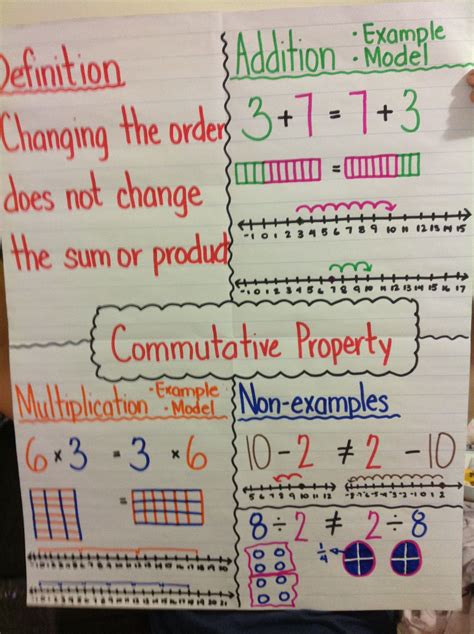 Definition
Changing the order
does not change
the sum or product
Addition
· Example
· Model
3+7 = 7+3
=
-1 0 1 2 3 4 5 6 7 8 9 10 11 12 13 14 15
Commutative Property
Multiplication
· Example
· Model
6 × 3 = 3 × 6
=
Non-examples
10-2 ≠ 2-10
5 6 7 8 9 10 11 12
8÷2 ≠ 2÷8
1/4